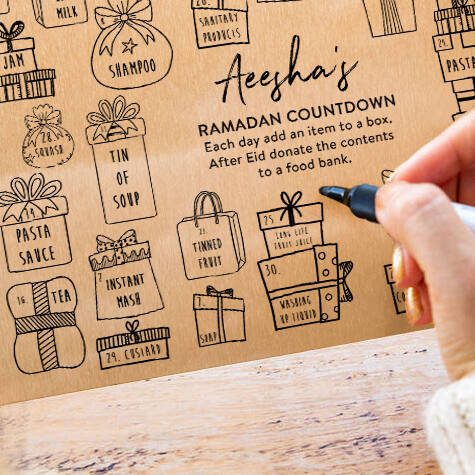 MILK
20.
SANITARY
PRODUCTS
24.
PASTA
JAM
SHAMPOO
Aeesha's
RAMADAN COUNTDOWN
Each day add an item to a box.
After Eid donate the contents
to a food bank.
28.
SQUASH
TIN
OF
SOUP
PASTA
SAUCE
TINNED
FRUIT
25.
LONG LIFE
FRUIT JUICE
30.
WASHING
UP LIQUID
INSTANT
MASH
16.
TEA
7.
SOAP
29. CUSTARD